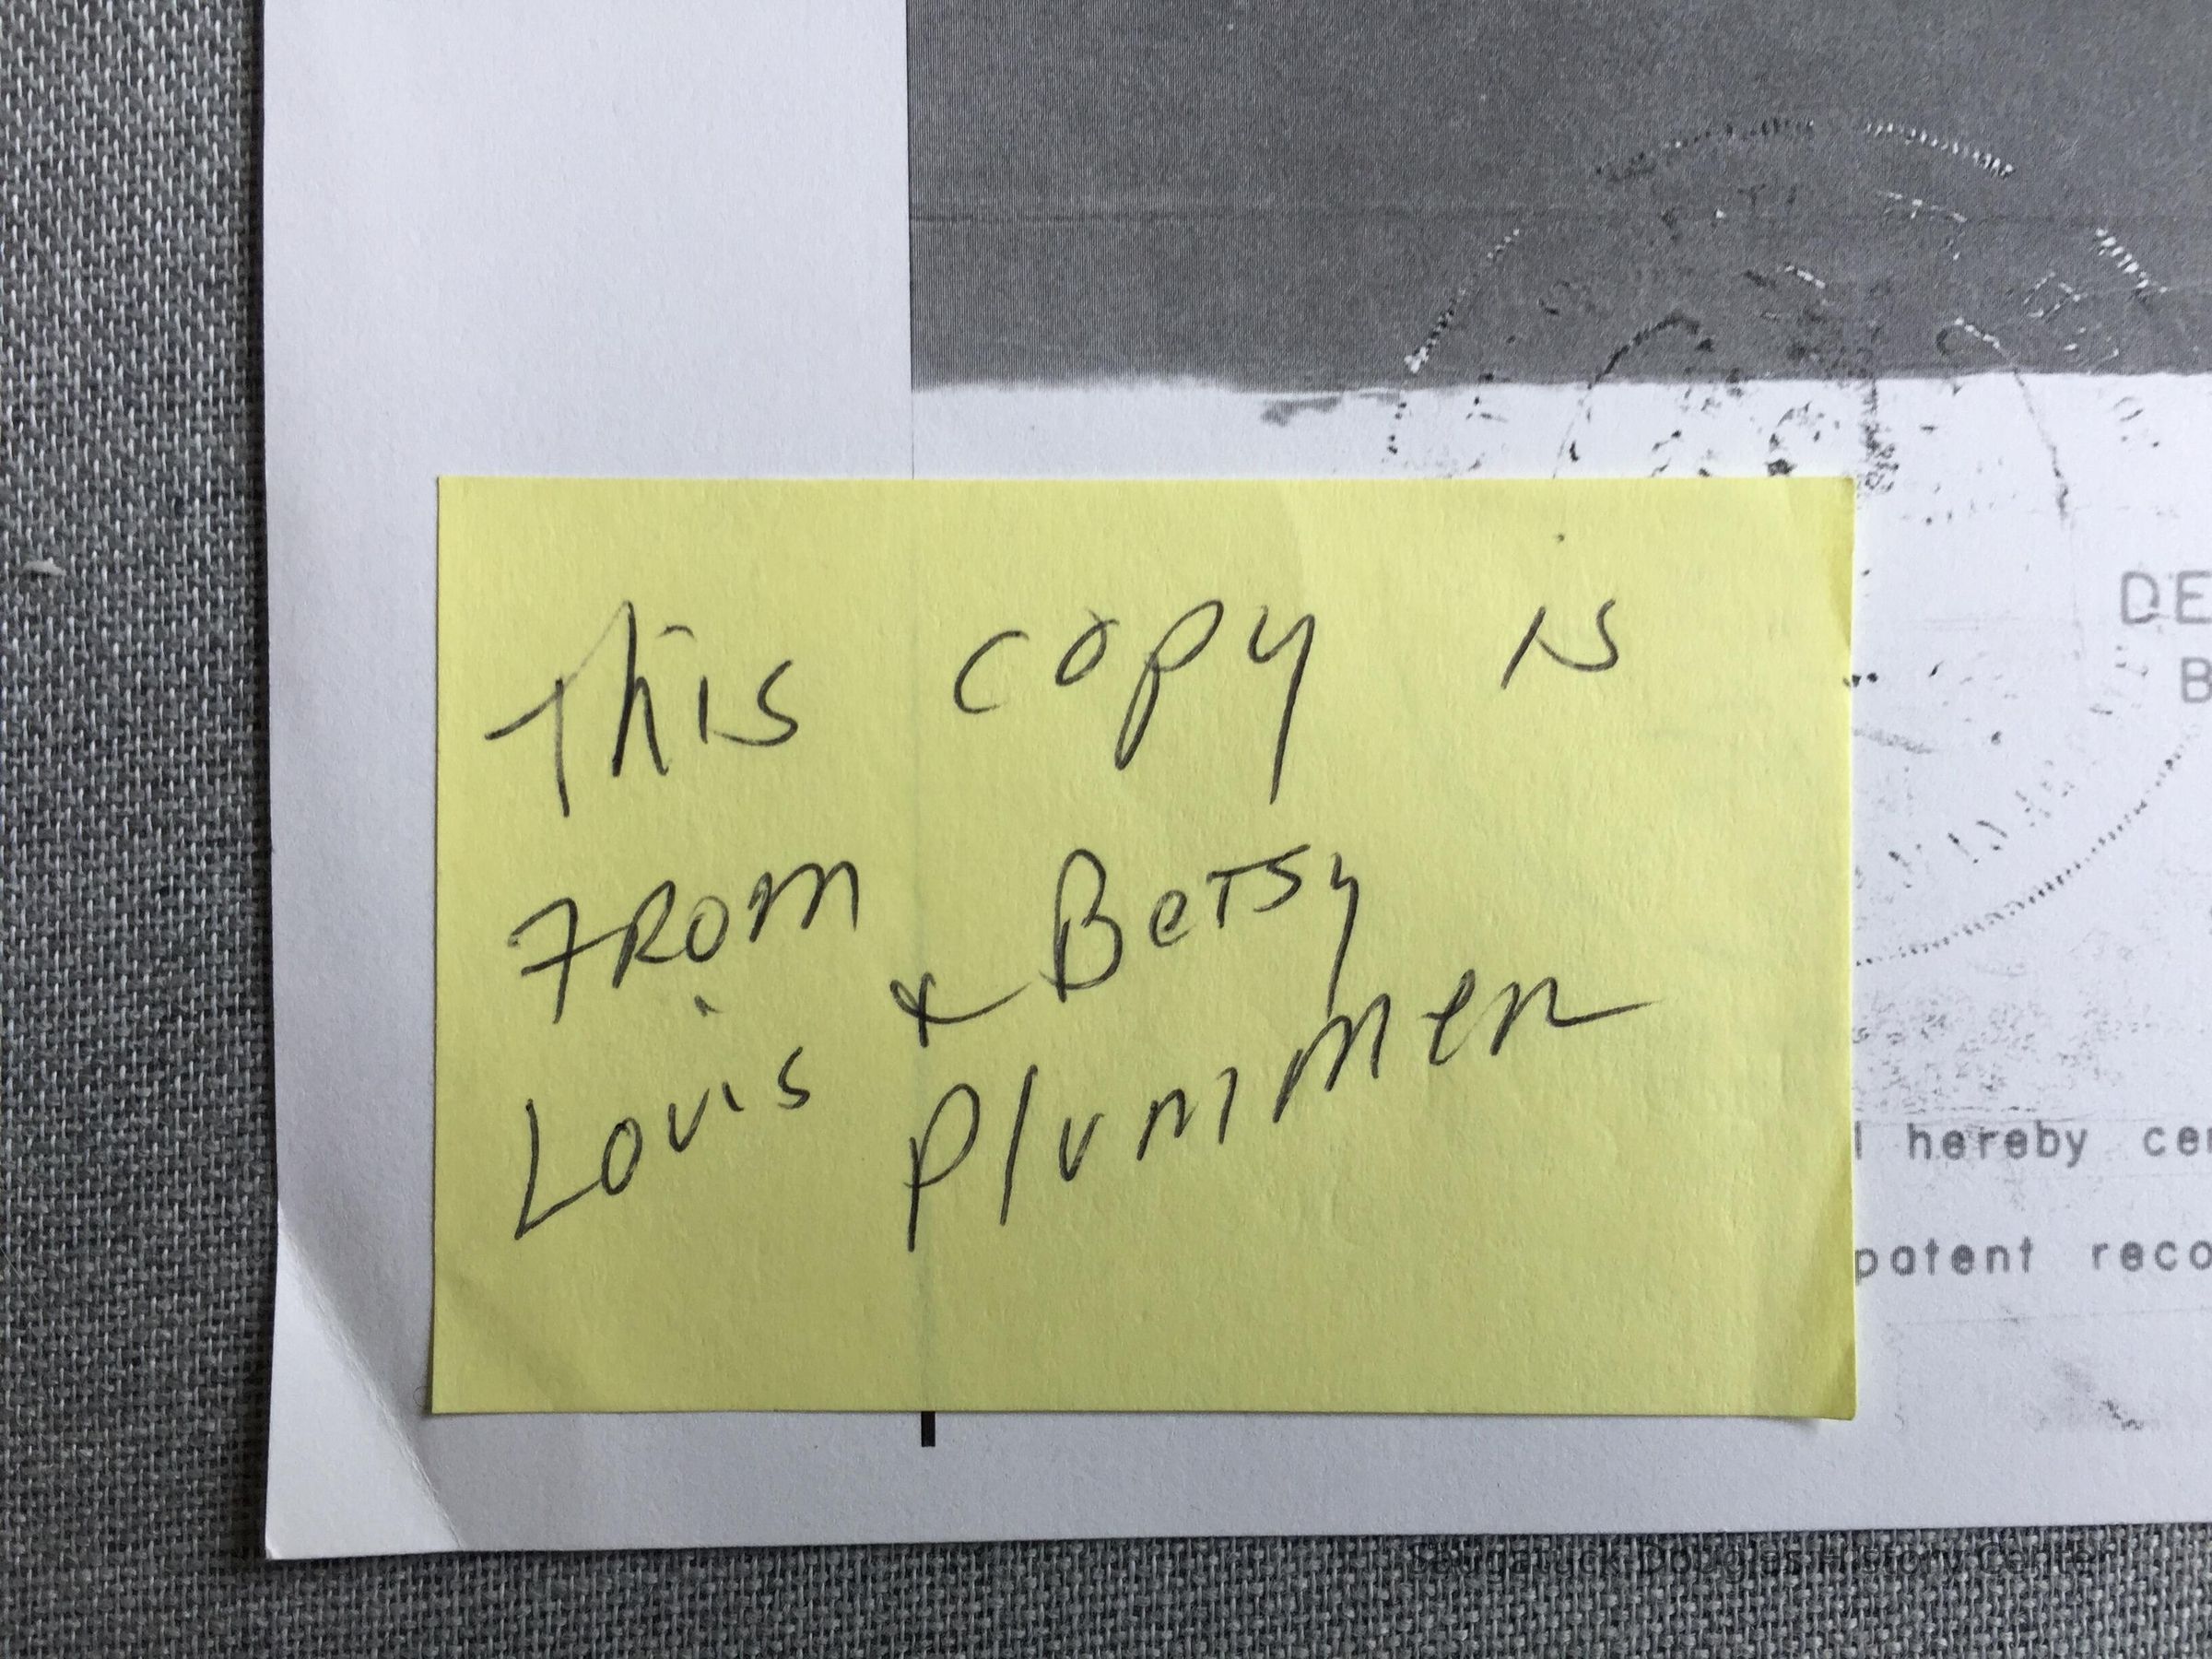 This copy is
FROM
& Betsy
Louis Plummer
DE
B
I hereby cer
patent reco
Saugatuck-Douglas History Center